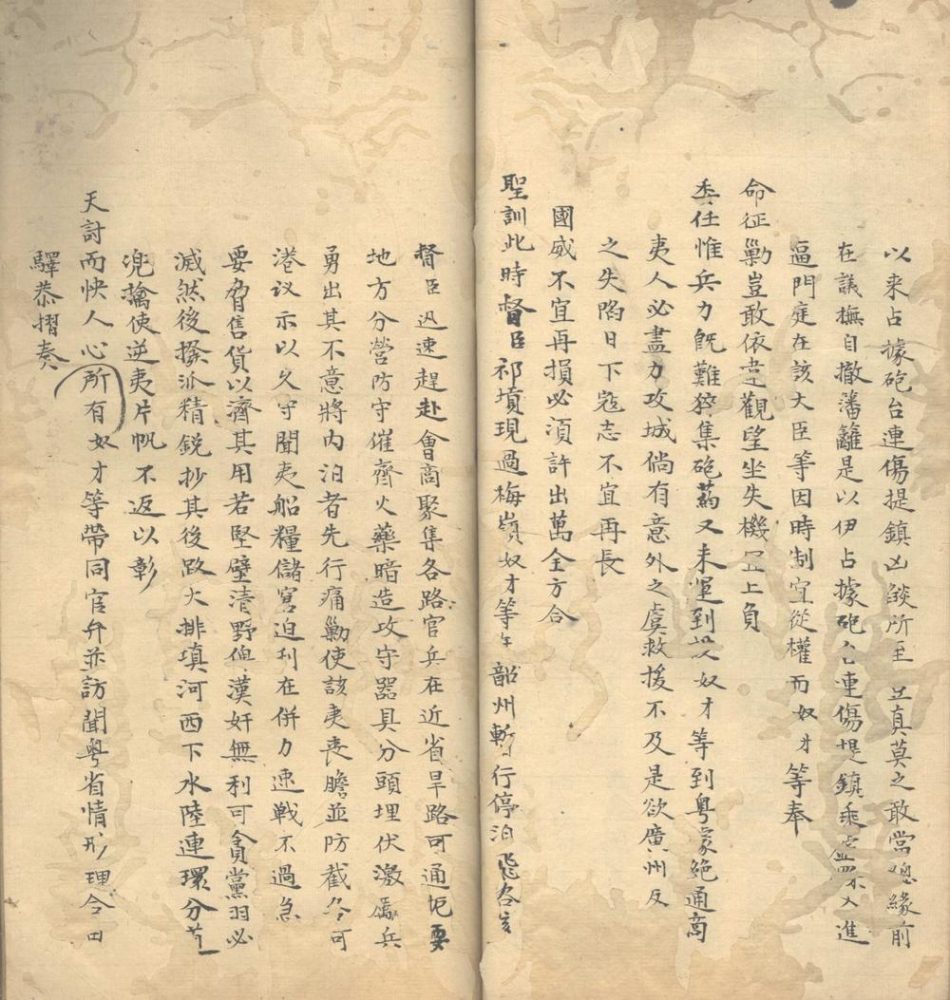 以来占據砲台連傷提鎮凶燄所至 真莫之敢當總緣前
在議撫自撤藩籬是以伊占據砲台連傷提鎮乘虛深入進
逼門庭在該大臣等因時制宜從權而奴才等奉
命征勦豈敢依違觀望坐失機 上負
委任惟兵力既難猝集砲药又未運到 奴才等到粤家絶通商
夷人必盡力攻城倘有意外之虞救援不及是欲廣州反
之失陷日下寇志不宜再長
國威不宜再損必須許出萬全方合
聖訓此時督臣祁墳現過梅嶺奴才等 韶州暫行停泊 咨
督臣迅速趕赴會商聚集各路官兵在近省旱路可通 要
地方分營防守催齊火藥暗造攻守噐具分頭埋伏激厲兵
勇出其不意將內泊者先行痛勦使該夷丧膽並防截 可
港议示以久守聞夷船糧儲窘迫利在併力速戰不過急
要脅售貨以濟其用若堅壁清野俾漢奸無利可貪黨羽必
滅然後撥派精鋭抄其後路火排填河西下水陸連環分
兜擒使逆夷片帆不返以彰
天討而快人心所有奴才等帶同官弁並訪聞粤省情形理合由
驛恭摺奏